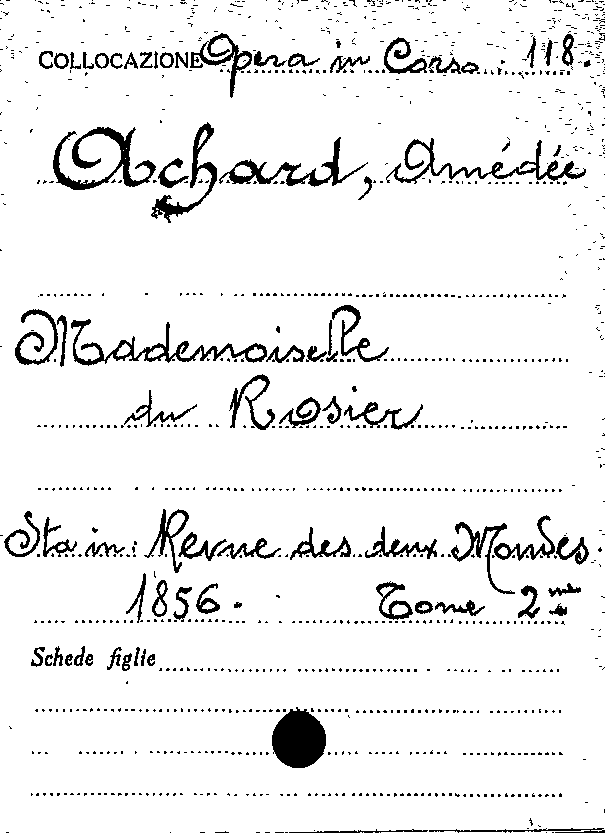 COLLOCAZIONE Opera in Corso. 118.
Achard, Amédée
Mademoiselle
du Rosier
Sta in: Revue des deux Mondes.
1856. Tome 2me
Schede figlie